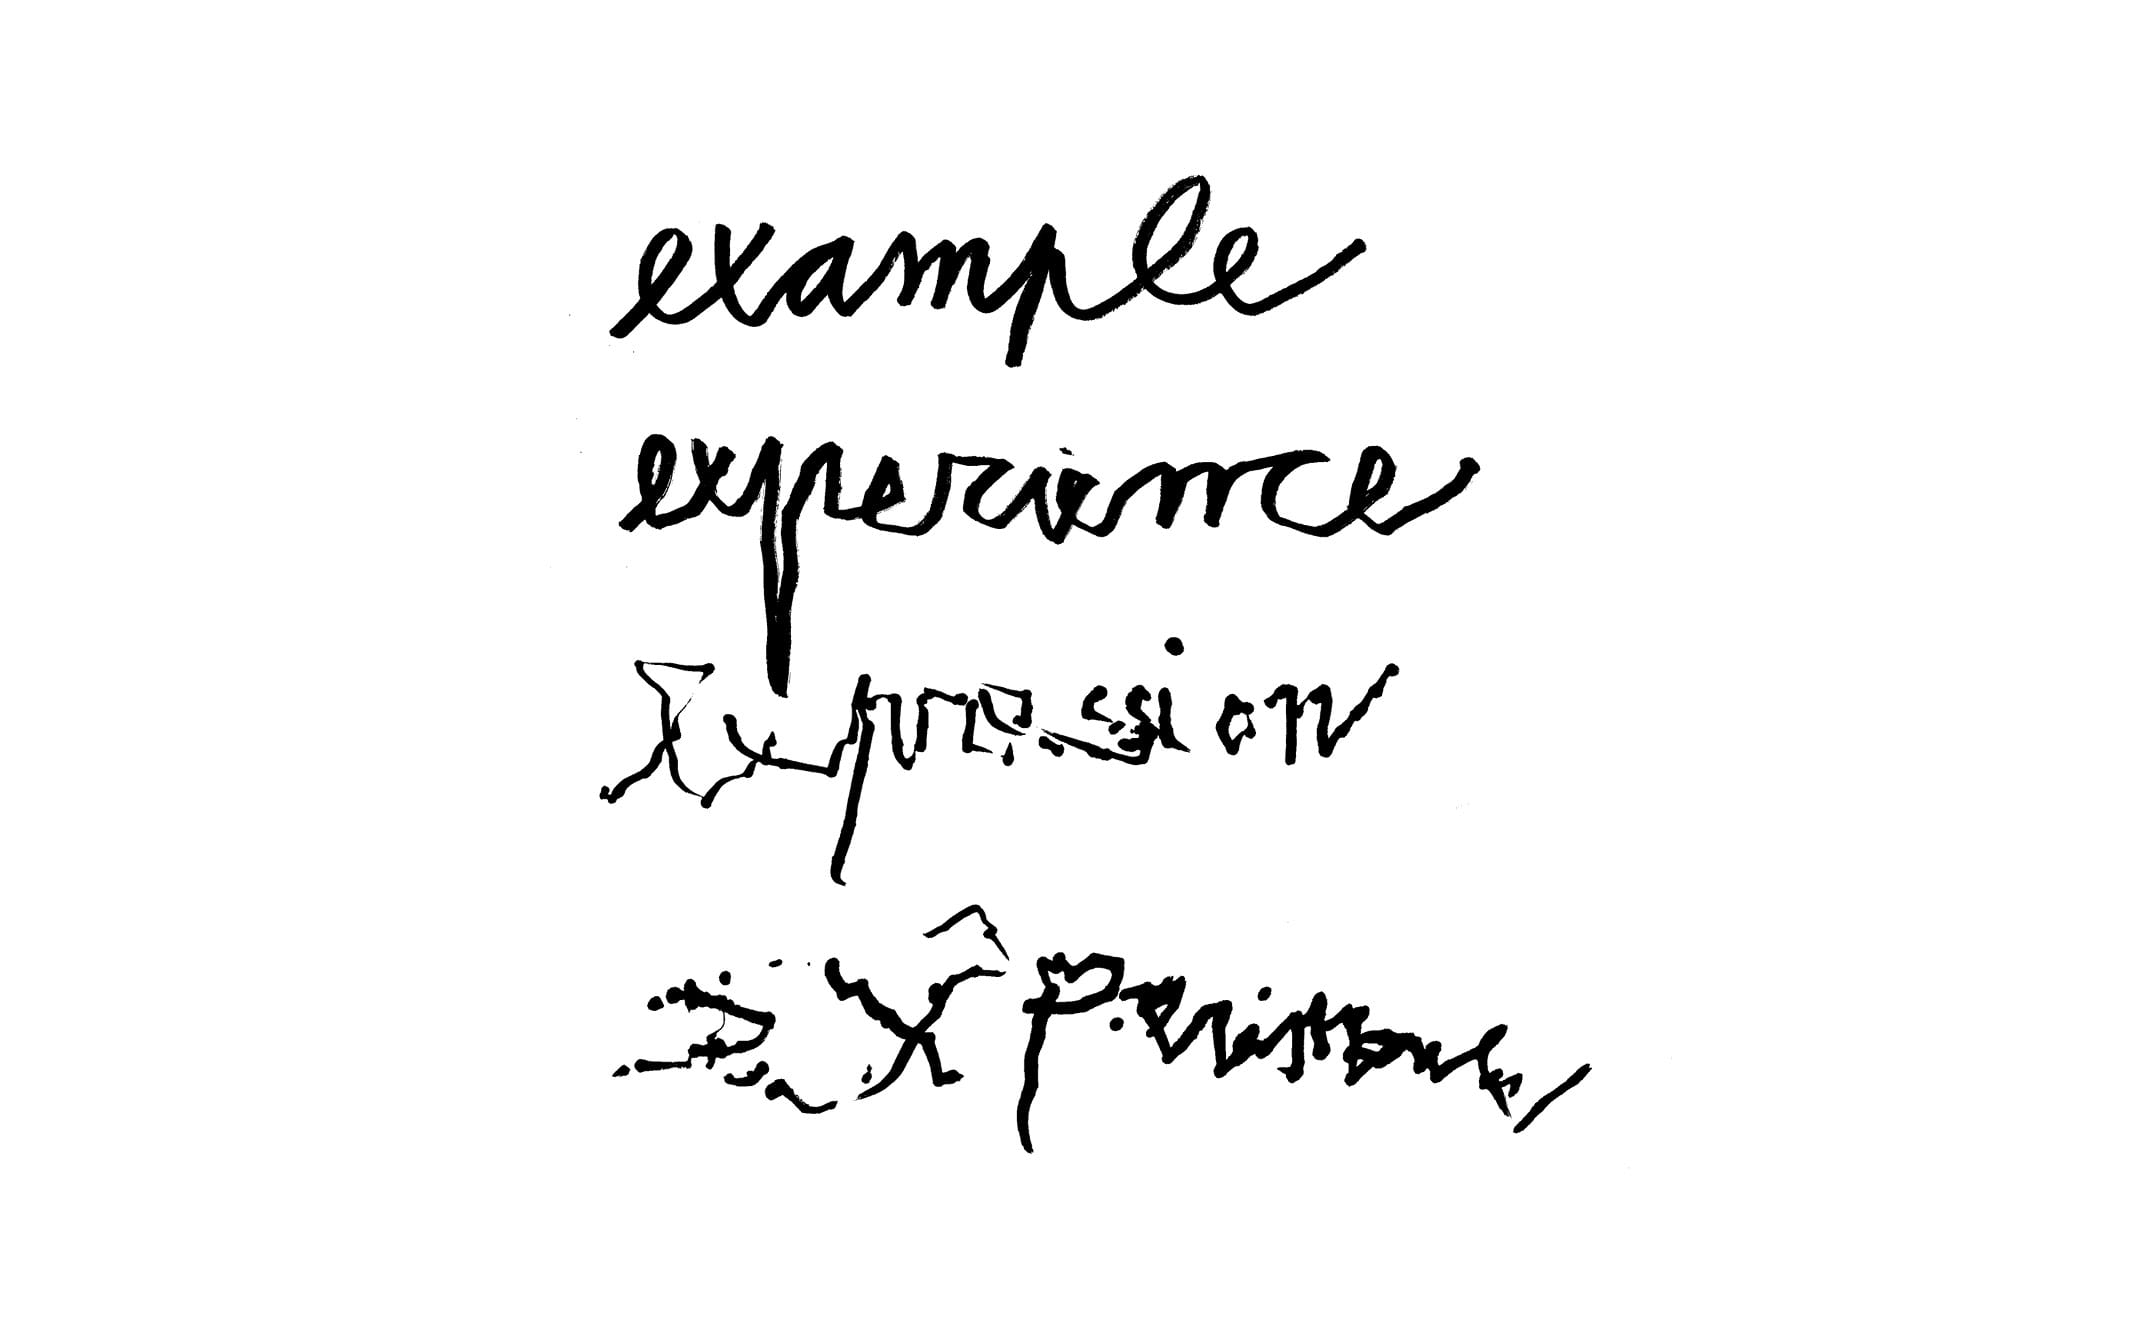 example
experience
expression